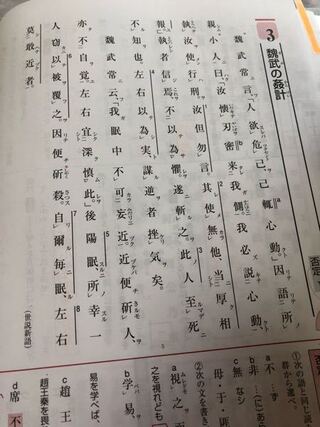 3 魏武の姦計
魏武常言「人欲危己、己輒心動。」因語所
親小人曰「汝懐刃密来我側、我必説心動、
執汝使行刑、汝但勿言其使、無他、当厚相
報。」執者信焉、不以為懼、遂斬之。此人至死
不知也。左右以為実、謀逆者挫気矣。
魏武常云「我眠中不可妄近、近便斫人、
亦不自覚。左右宜深慎此。」後陽眠、所幸一
人窃以被覆之、因便斫殺。自爾毎眠、左右
莫敢近者。
(世説新語)
①次の語と同じ
群から選べ。
a 不…ず
b 非…(に)あ
c 無 なシ
母・于・匪
②次の文を書き
a 視之而
之を視れども
b 学易、
易を学べば、
c 趙王
趙王秦を畏
d 席不